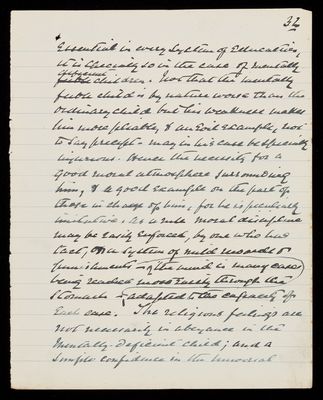 32
Essential in every System of Education,
it is specially so in the case of mentally
feeble children. Not that the mentally
feeble child is by nature worse than the
ordinary child but his weakness makes
him more pliable, & an evil example, not
to say precept - may in his case be specially
injurious. Hence the necessity for a
good moral atmosphere surrounding
him, & a good example on the part of
those in charge of him, for he is peculiarly
imitative. As a rule moral discipline
may be easily enforced, by one who has
tact, on a system of mild rewards &
punishments - (the mind in many cases
being reached most easily through the
stomach) - adapted to the capacity of
each case. The religious feelings are
not necessarily in abeyance in the
Mentally-deficient child; and a
simple confidence in the Universal